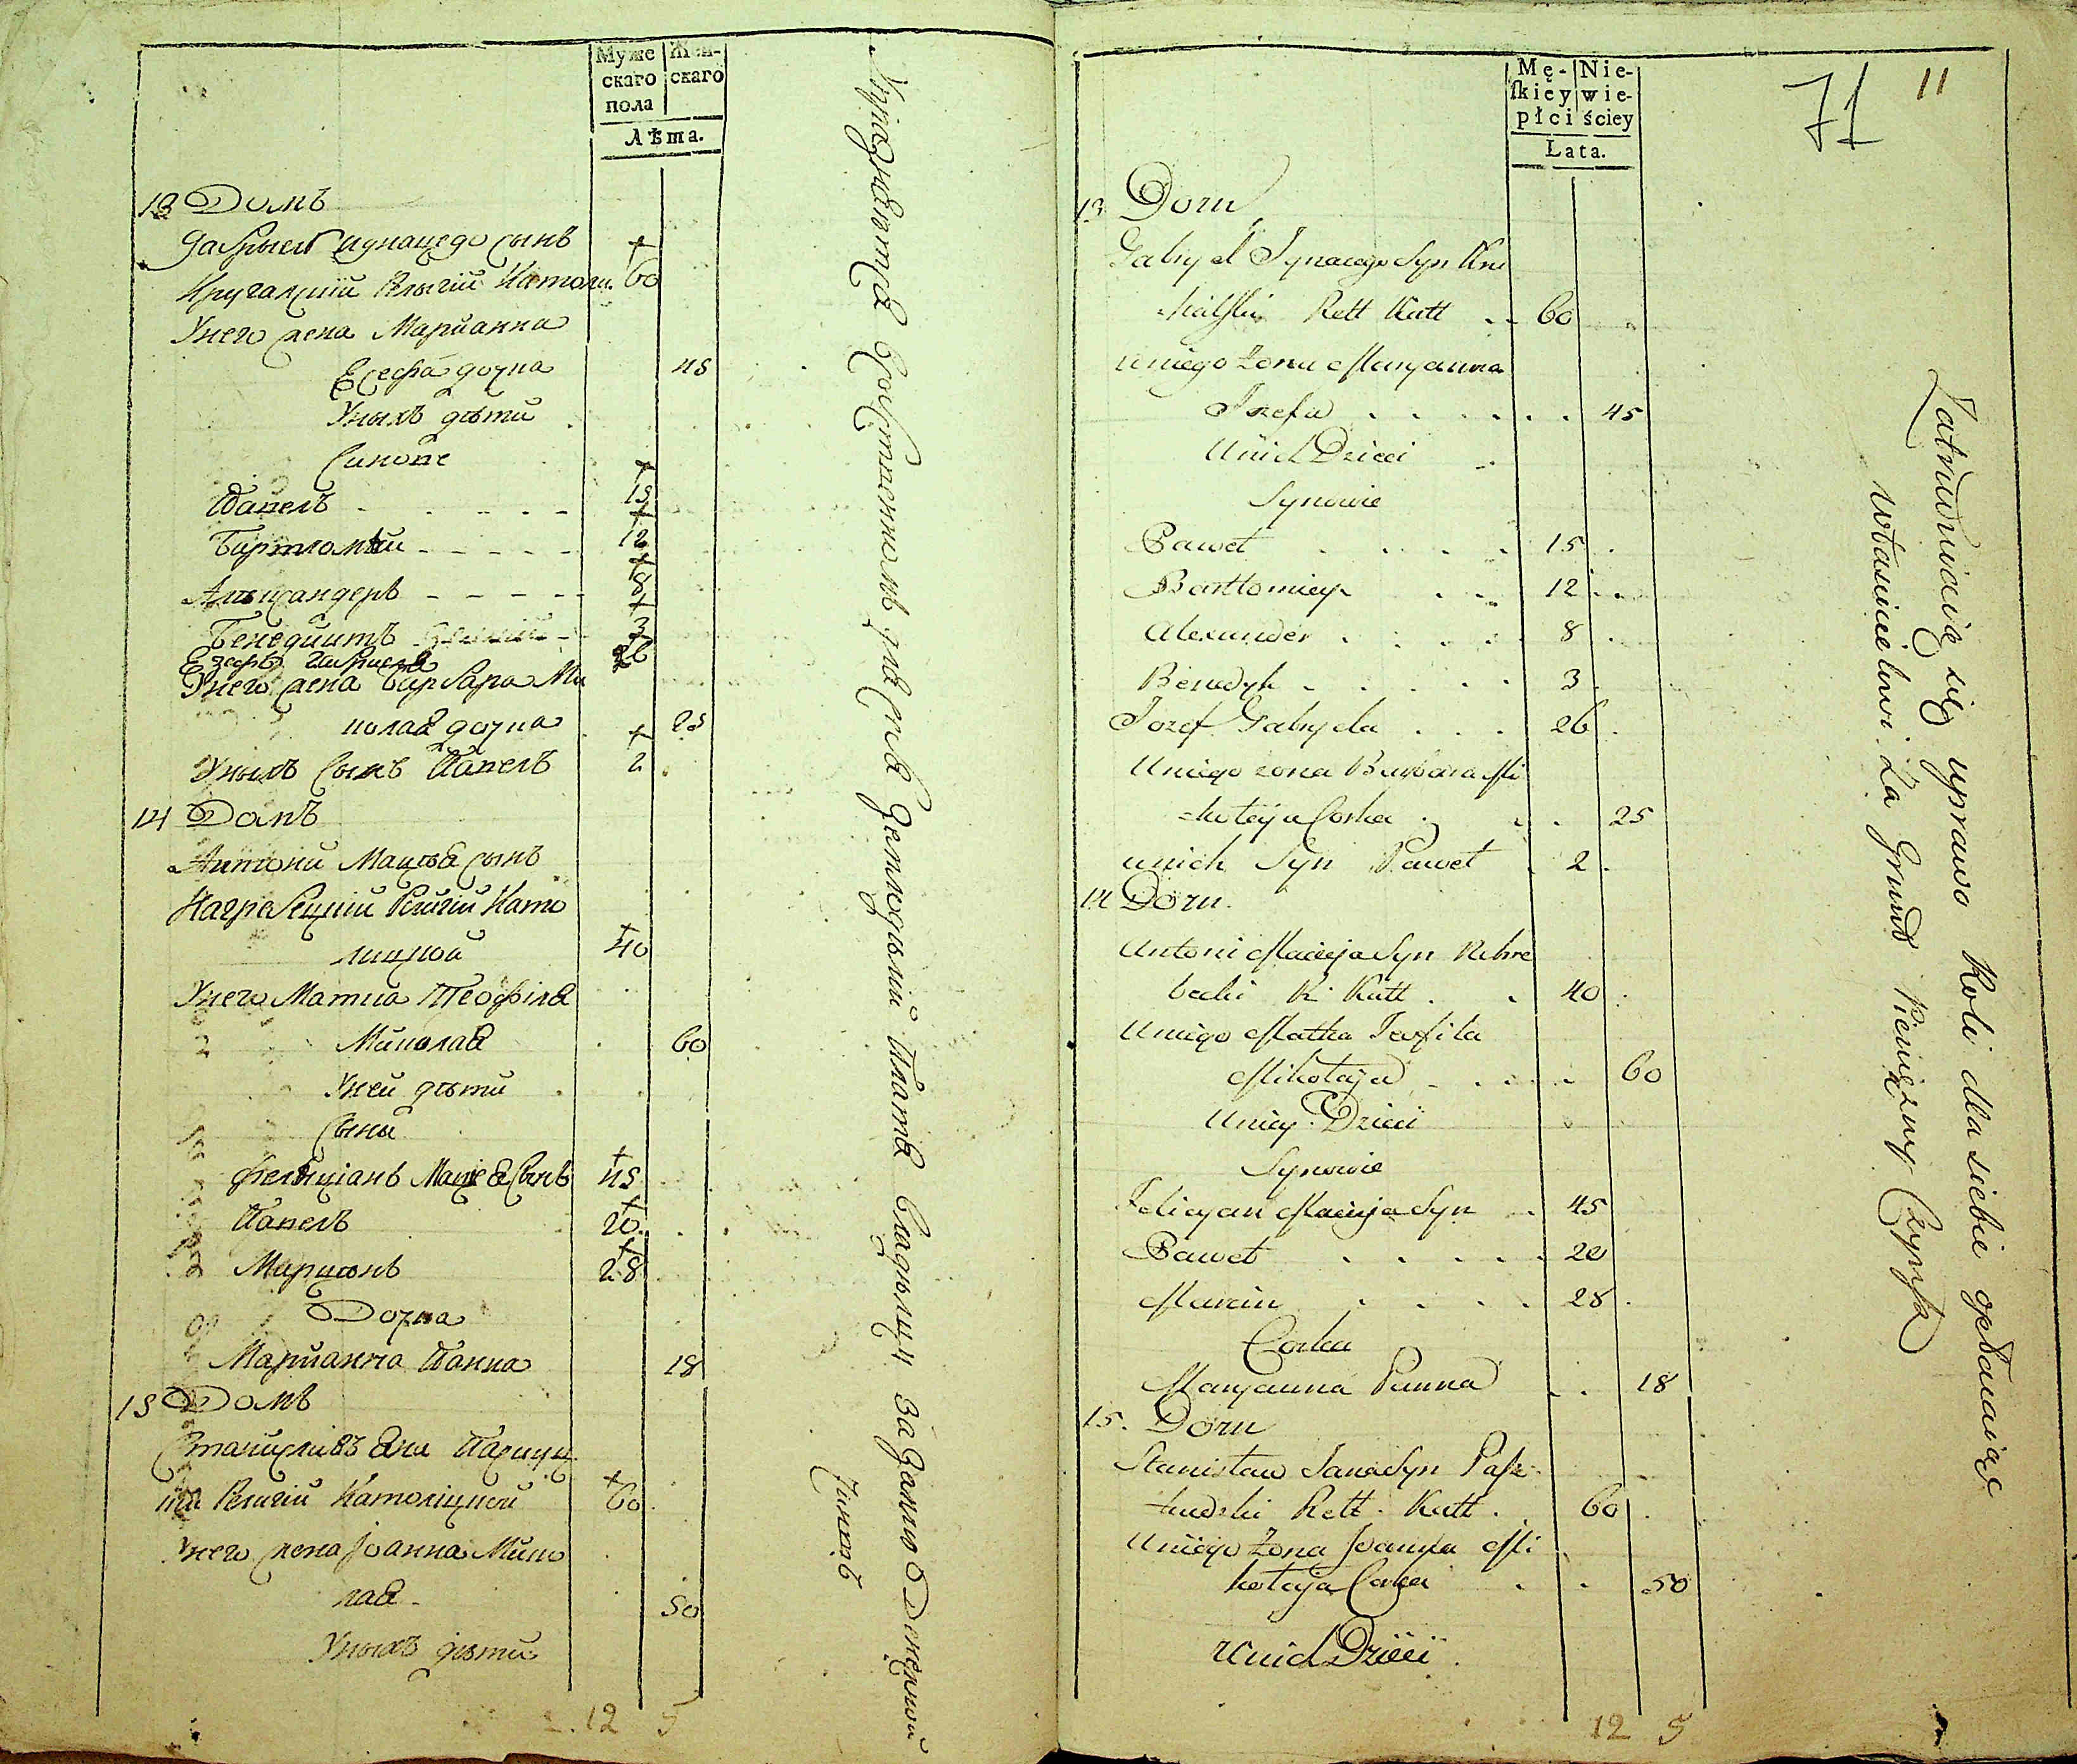 Муже
скаго
пола
Жен-
скаго
Лѣта.
13 Домъ
Габрыель Игнацего сынъ
Кругальскии Религіи Католи. 60
Унего жена Марианна
Есефа дочка 45
Уныхъ дѣти
Синове
Павелъ 15
Бартломѣи 12
Александеръ 8
Бенедиктъ 3
Езефъ Габриеля 26
Унего жена Барбара Ми
колая дочка 25
Уныхъ Сынъ Павелъ 2
14 Домъ
Антони Мацѣя сынъ
Религіи Като
лицкой 40
Унего Матка Теофиля
Миколая 60
Уней дѣти
Сыны
Фелиціанъ Мацѣя Сынъ 45
Павелъ 20
Марцинъ 28
Дочка
Марианна Панна 18
15 Домъ
Станиславъ Яна
Религіи Католицкой 60
Унего жена Іоанна Мико
лая 50
Уныхъ дѣти
12 5
для себя платя владѣлцу за землю Денежной
Чиншъ
Mę-
skiey
płci
Nie-
wie-
ściey
Lata.
71 11
13 Dom
Gabryel Ignacego Syn Kru
Rell Katt 60
Uniego Zona Maryanna
Jozefa 45
Unich Dzieci
Synowie
Paweł 15
Bartłomiey 12
Alexander 8
Benedyk 3
Jozef Gabryela 26
Uniego zona Barbara Mi
kołaja Corka 25
unich Syn Paweł 2
14 Dom
Antoni Macieja Syn Nebre
becki R. Katt 40
Uniego Matka Teofila
Mikołaja 60
Uniey Dzieci
Synowie
Felicyan Macieja Syn 45
Paweł 20
Marcin 28
Corka
Maryanna Panna 18
15. Dom
Stanisław Jana Syn Pasz
kudzki Rell. Katt. 60
Uniego Zona Joanna Mi
kołaja Corka 50
Unich Dzieci
12 5
Zatrudniaią się uprawą Roli dla siebie opłacaiąc
Właścicielowi Za Grunt Pieniężny Czynsz